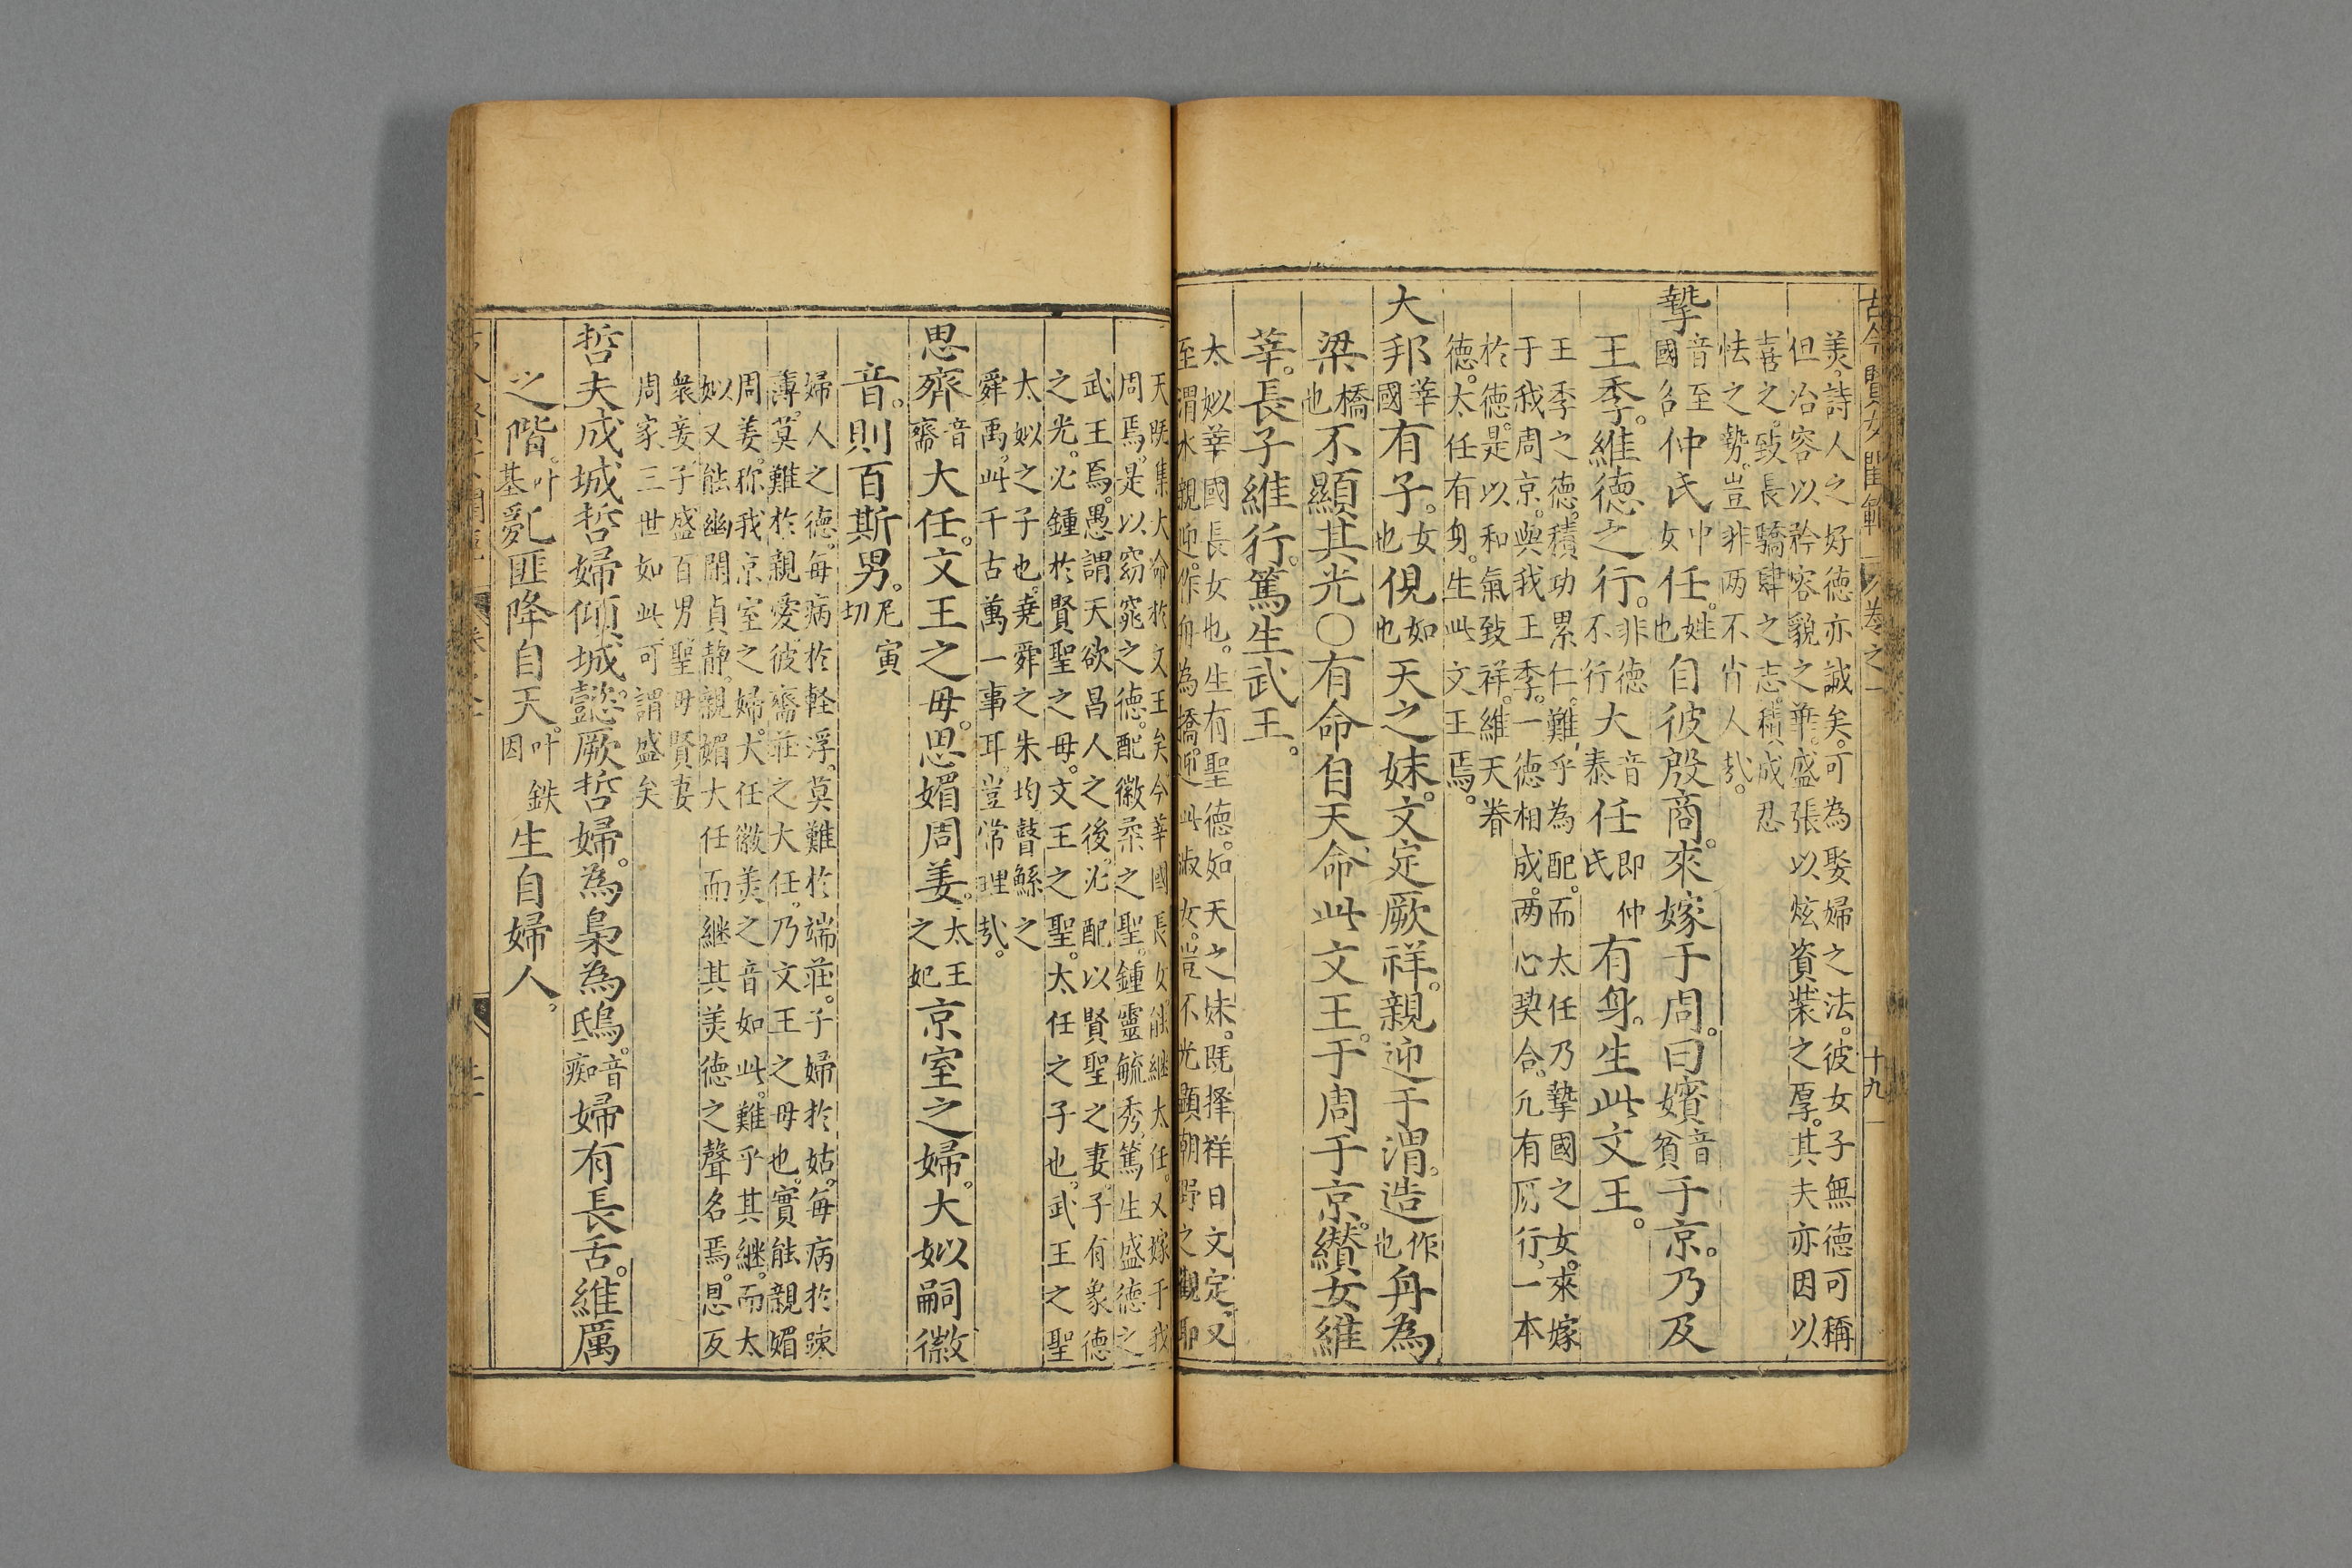 古今賢女閨範 卷之一 十九
美詩人之好德亦誠矣可為娶婦之法彼女子無德可稱
但冶容以矜容貌之華盛張以炫資裝之厚其夫亦因以
喜之致長驕肆之志積成忍
怯之勢豈非两不肖人㢤
摯音至國名仲氏中女任姓也自彼殷商來嫁于周曰嬪音貧于京乃及
王季維德之行非德不行大音泰任即仲氏有身生此文王
王季之德積功累仁難乎為配而太任乃摯國之女來嫁
于我周京與我王季一德相成两心契合凢有所行一本
於德是以和氣致祥維天眷
德太任有身生此文王焉
大邦莘國有子女也俔如也天之妹文定厥祥親迎于渭造作也舟為
梁橋也不顯其光○有命自天命此文王于周于京纘女維
莘長子維行篤生武王
太姒莘國長女也生有聖德如天之妹既择祥日文定又
至渭水親迎作舟為橋迎此淑女豈不光顯朝野之觀耶
天既集大命於文王矣今莘國長女能継太任又嫁于我
周焉是以窈窕之德配徽柔之聖鍾靈毓秀篤生盛德之
武王焉愚謂天欲昌人之後必配以賢聖之妻子有象德
之光必鍾於賢聖之母文王之聖太任之子也武王之聖
太姒之子也堯舜之朱均瞽鯀之
舜禹此千古萬一事耳豈常理㢤
思齊音齋大任文王之母思媚周姜太王之妃京室之婦大姒嗣徽
音則百斯男尼寅切
婦人之德毎病於軽浮莫難於端莊子婦於姑每病於踈
薄莫難於親愛彼齋莊之大任乃文王之母也實能親媚
周姜称我京室之婦大任徽美之音如此難乎其継而太
姒又能幽閒貞静親媚大任而継其美德之聲名焉恩及
衆妾子盛百男聖母賢妻
周家三世如此可謂盛矣
哲夫成城哲婦傾城懿厥哲婦為梟為鴟音痴婦有長舌維厲
之階叶基亂匪降自天叶鉄因生自婦人